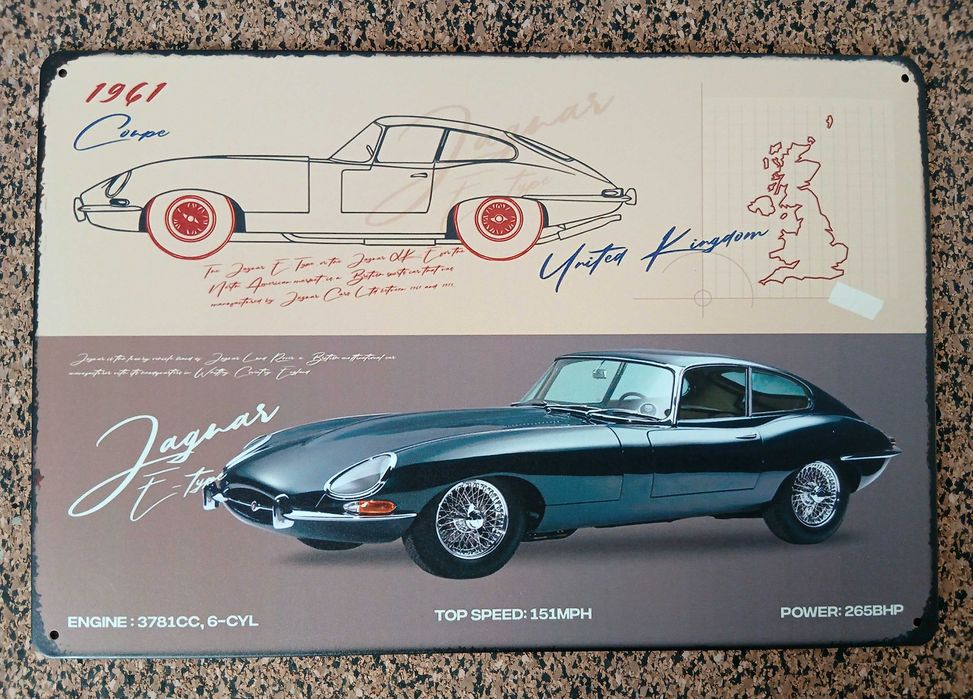 1961
Coupe
Jaguar
E-type
The Jaguar E Type or the Jaguar XK-E for the
North American market is a British sports car that was
manufactured by Jaguar Cars Ltd between 1961 and
United Kingdom
Jaguar is the luxury vehicle brand of Jaguar Land Rover a British multinational car
manufacturer with its headquarters in Whitley Coventry England
Jaguar
E-type
ENGINE : 3781CC, 6-CYL
TOP SPEED: 151MPH
POWER: 265BHP